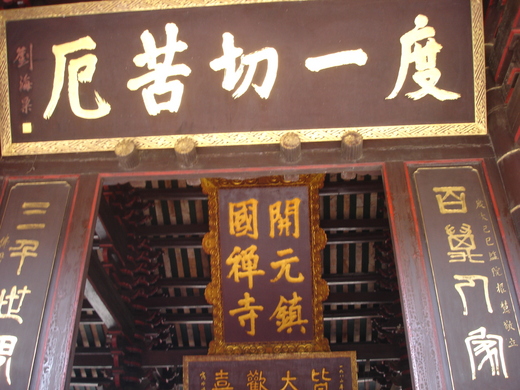 度一切苦厄
劉海粟
開元鎮
國禪寺
皆大歡喜
百萬人家
三千世界